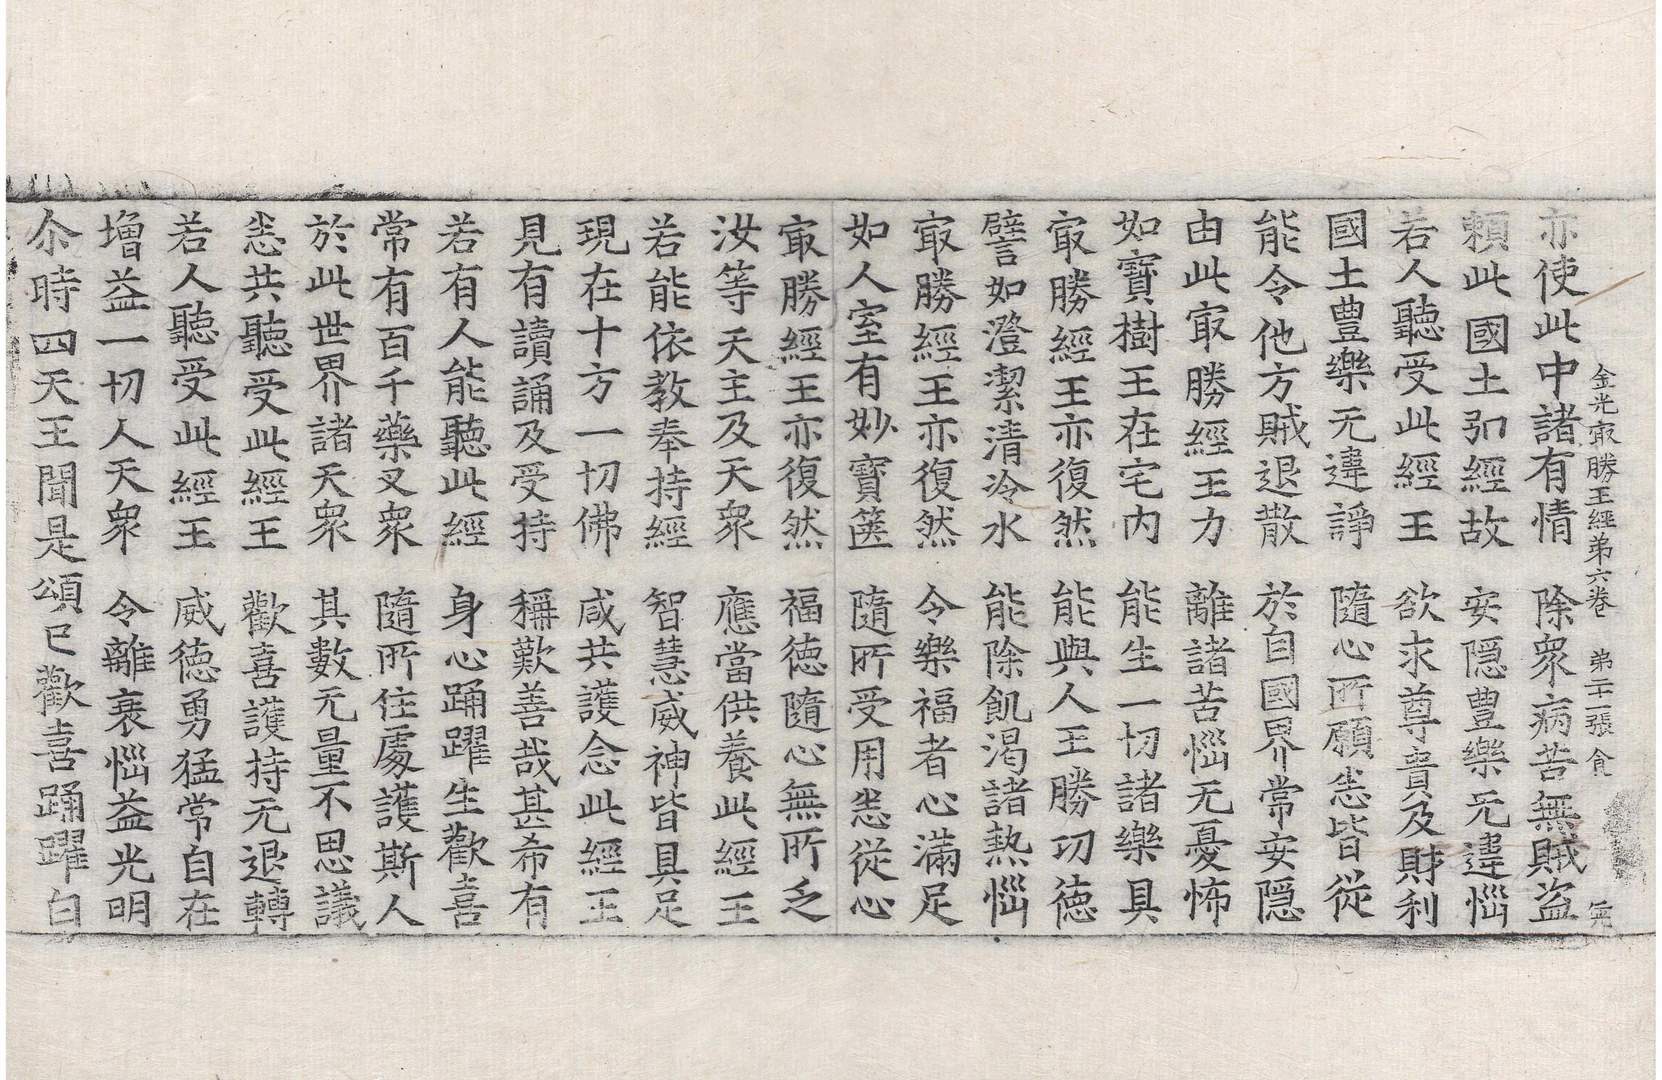 金光㝡勝王經弟六卷 弟二十一張 食
亦使此中諸有情 除衆病苦無賊盗
頼此國土弘經故 安隠豊樂无違惱
若人聽受此經王 欲求尊貴及財利
國土豊樂无違諍 隨心所願悉皆從
能令他方賊退散 於自國界常安隠
由此㝡勝經王力 離諸苦惱无憂怖
如寶樹王在宅内 能生一切諸樂具
㝡勝經王亦復然 能與人王勝功德
譬如澄潔清冷水 能除飢渴諸熱惱
㝡勝經王亦復然 令樂福者心滿足
如人室有妙寶篋 隨所受用悉從心
㝡勝經王亦復然 福德隨心無所乏
汝等天主及天衆 應當供養此經王
若能依教奉持經 智慧威神皆具足
現在十方一切佛 咸共護念此經王
見有讀誦及受持 稱歎善哉甚希有
若有人能聽此經 身心踊躍生歡喜
常有百千藥叉衆 隨所住處護斯人
於此世界諸天衆 其數无量不思議
悉共聽受此經王 歡喜護持无退轉
若人聽受此經王 威德勇猛常自在
增益一切人天衆 令離衰惱益光明
尒時四天王聞是頌已歡喜踊躍白